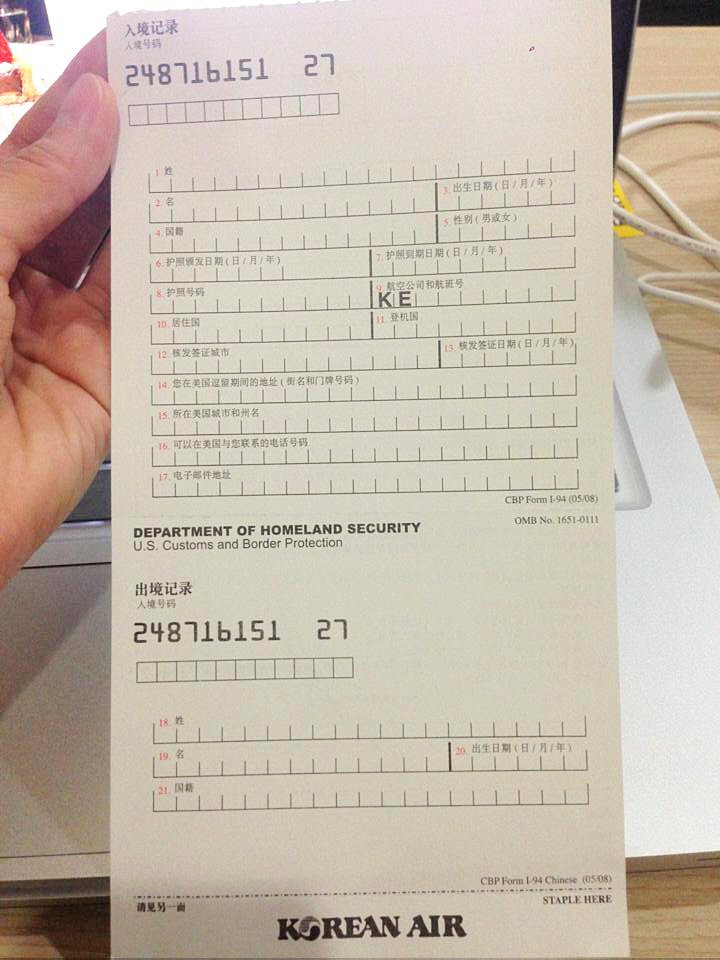 入境记录
入境号码
248716151 27
1. 姓
2. 名
3. 出生日期 (日 / 月 / 年)
4. 国籍
5. 性别 (男或女)
6. 护照颁发日期 (日 / 月 / 年)
7. 护照到期日期 (日 / 月 / 年)
8. 护照号码
9. 航空公司和航班号
KE
10. 居住国
11. 登机国
12. 核发签证城市
13. 核发签证日期 (日 / 月 / 年)
14. 您在美国逗留期间的地址 (街名和门牌号码)
15. 所在美国城市和州名
16. 可以在美国与您联系的电话号码
17. 电子邮件地址
CBP Form I-94 (05/08)
OMB No. 1651-0111
DEPARTMENT OF HOMELAND SECURITY
U.S. Customs and Border Protection
出境记录
入境号码
248716151 27
18. 姓
19. 名
20. 出生日期 (日 / 月 / 年)
21. 国籍
CBP Form I-94 Chinese (05/08)
请见另一面
STAPLE HERE
KOREAN AIR